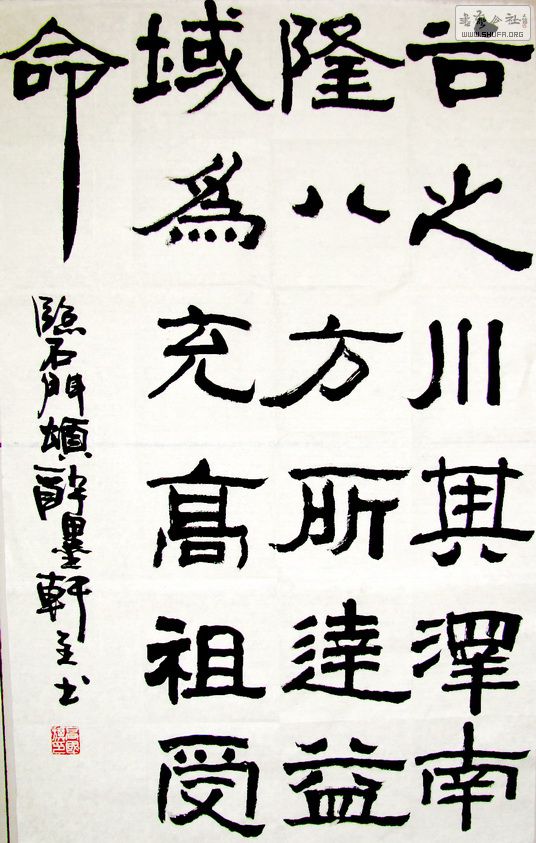 谷之川其澤南
隆八方所達益
域爲充高祖受
命
臨石門頌醉墨軒主书
WWW.SHUFA.ORG